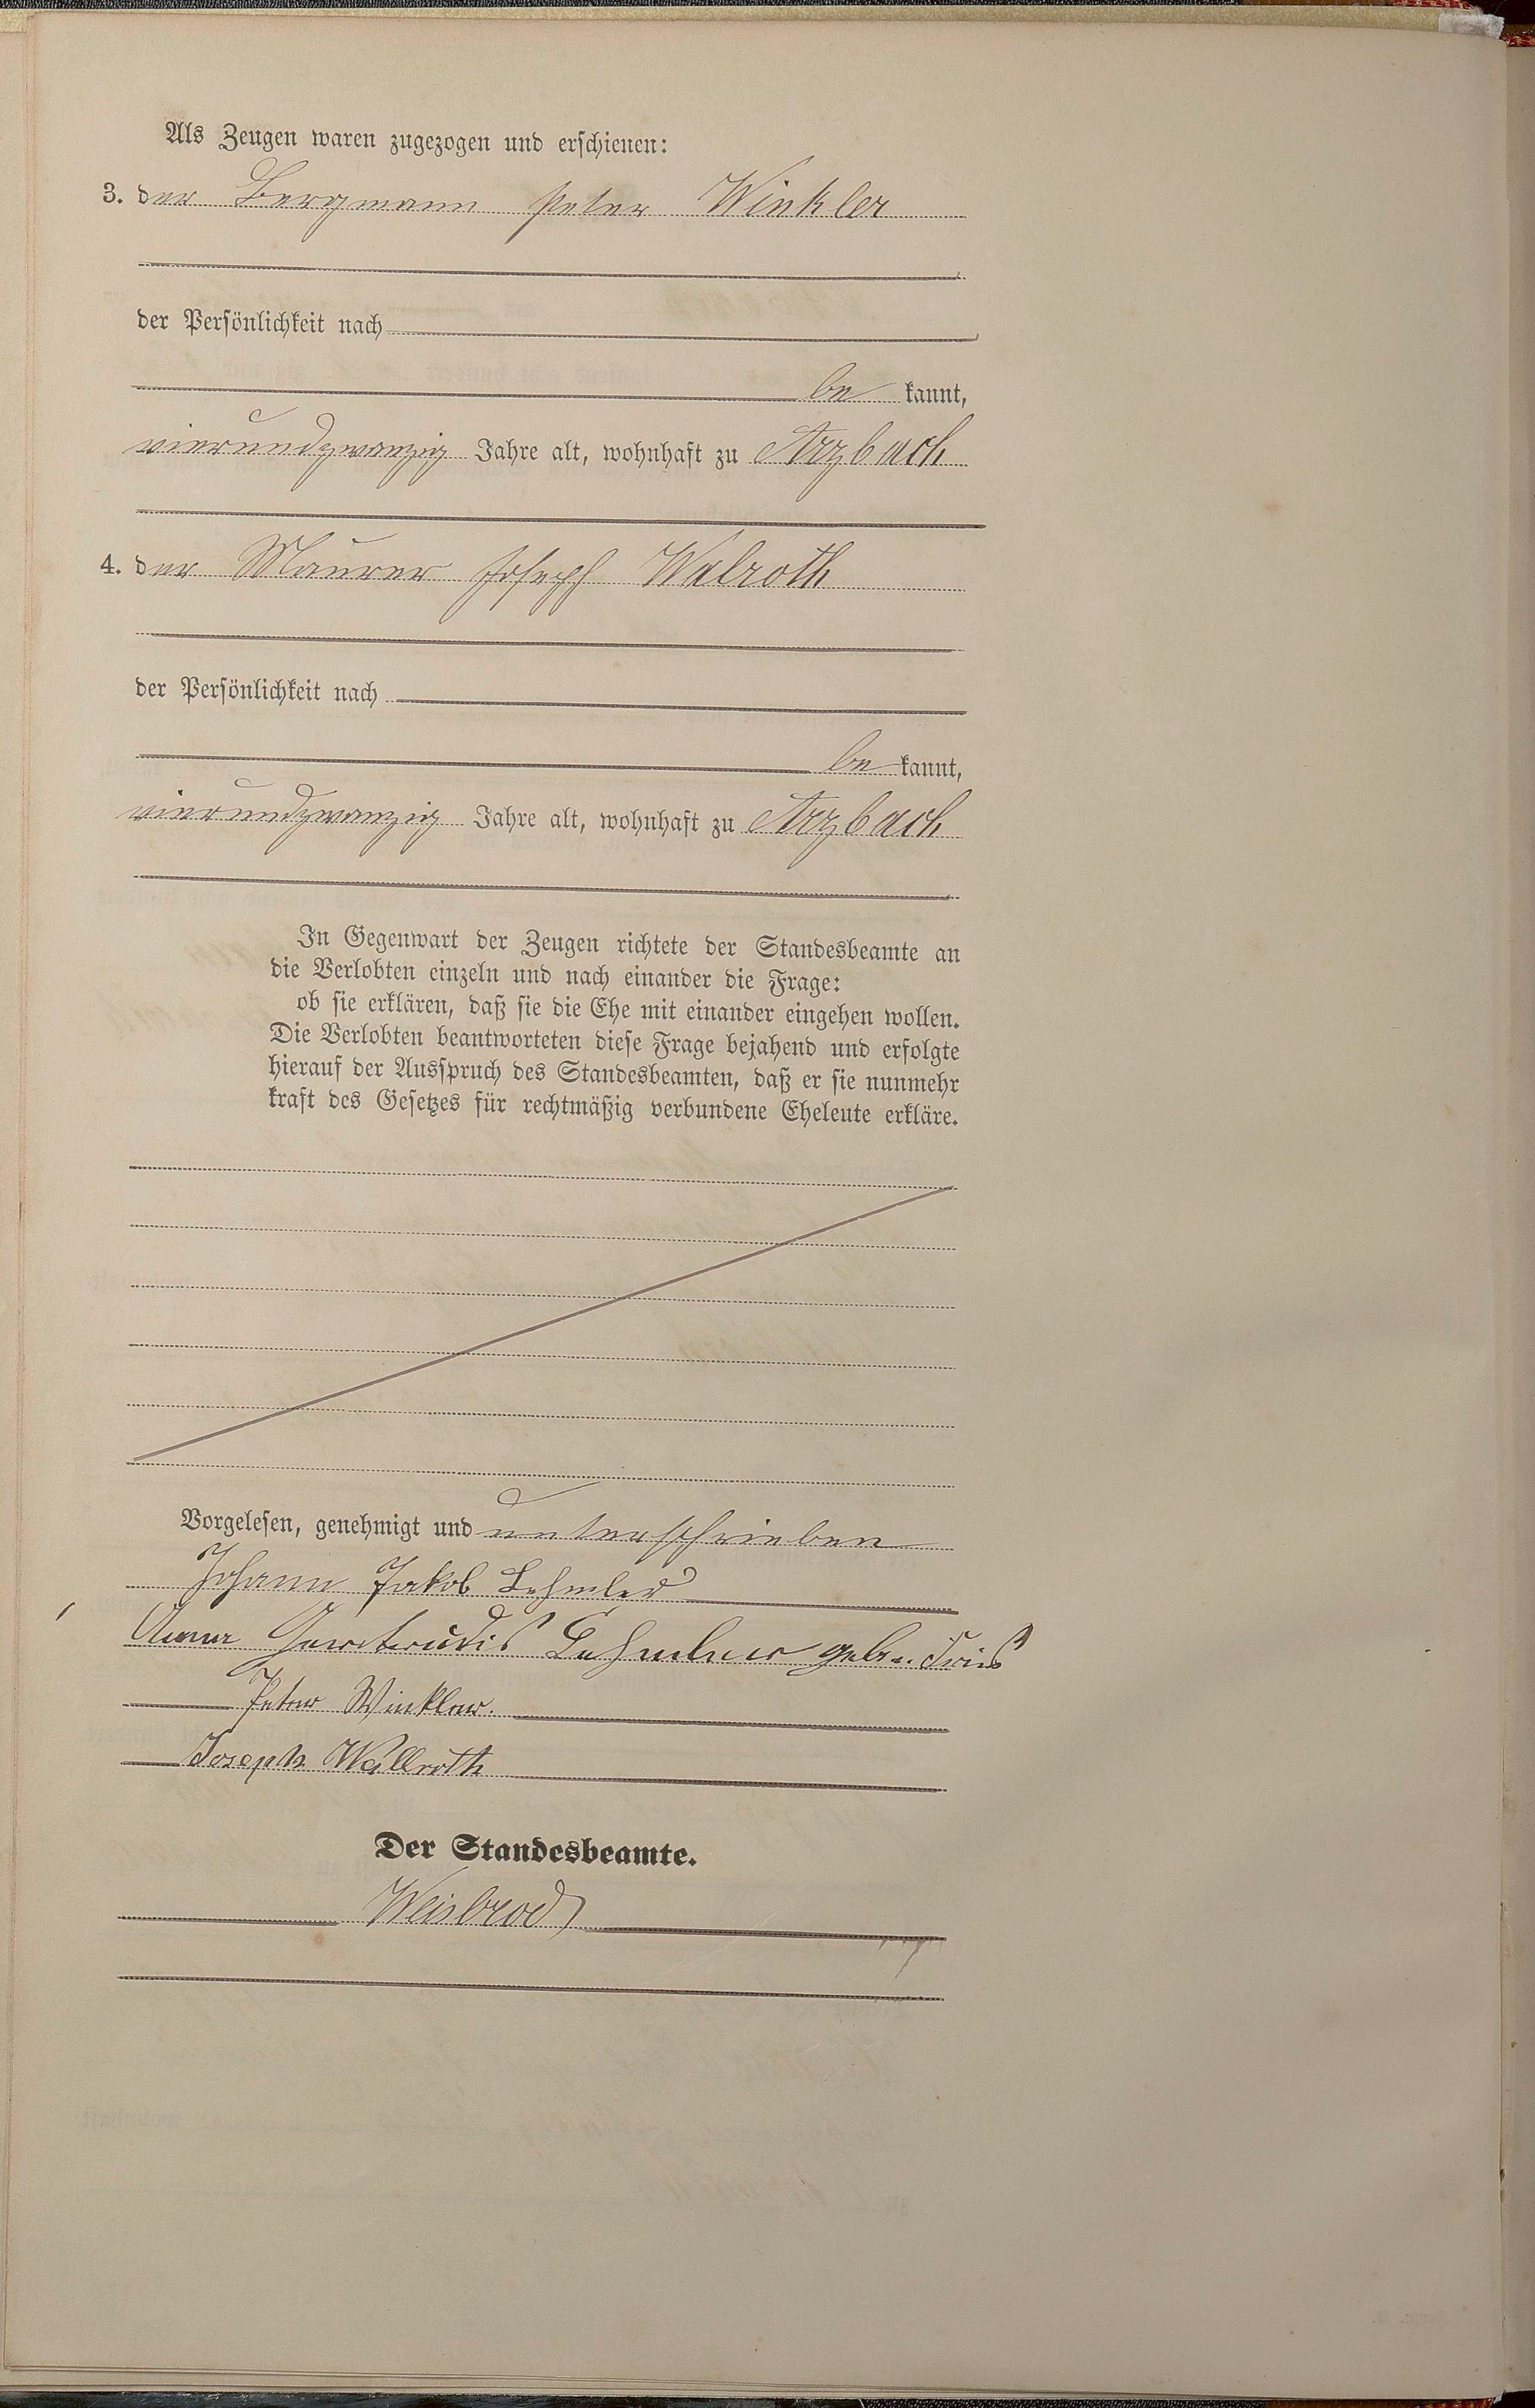 Als Zeugen waren zugezogen und erschienen:
3. der Bergmann Peter Winkler
der Persönlichkeit nach
be kannt,
vierundzwanzig Jahre alt, wohnhaft zu Arzbach
4. der Maurer Joseph Walroth
der Persönlichkeit nach
be kannt,
vierundzwanzig Jahre alt, wohnhaft zu Arzbach
In Gegenwart der Zeugen richtete der Standesbeamte an
die Verlobten einzeln und nach einander die Frage:
ob sie erklären, daß sie die Ehe mit einander eingehen wollen.
Die Verlobten beantworteten diese Frage bejahend und erfolgte
hierauf der Ausspruch des Standesbeamten, daß er sie nunmehr
kraft des Gesetzes für rechtmäßig verbundene Eheleute erkläre.
Vorgelesen, genehmigt und unterschrieben
Johann Jakob Lehmler
Anna Gertrudis Lehmler geb.
Peter Winkler.
Joseph Wallroth
Der Standesbeamte.
Weisbrod